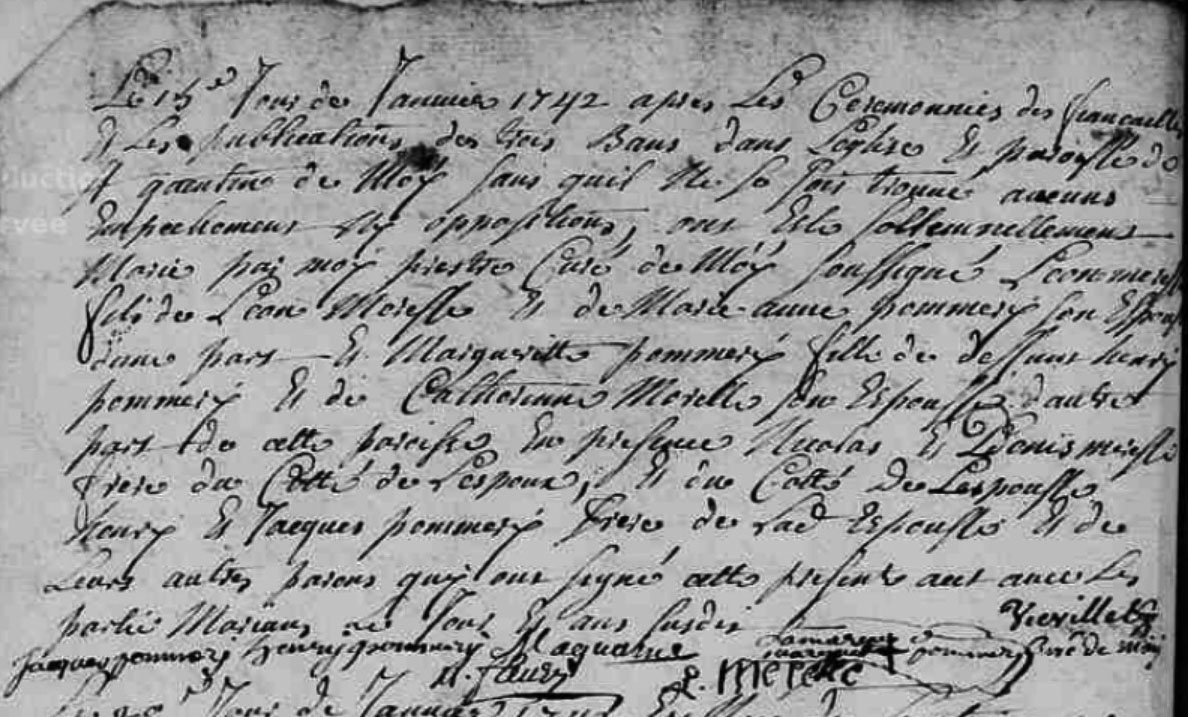 Le 15e Jour de Janvier 1742 apres Les Ceremonnies des fiancaille
Et Les publications des trois Bans dans Leglise Et paroisse de
St quentin de Moÿ sans quil Ne se soit trouvé aucuns
Empechement Ny oppositions, ont Esté sollemnellement
Marié par moÿ prestre Curé de Moÿ soussigné Leon meresse
fils de Leon Meresse Et de Marie anne pommerÿ son Espouse
dune part Et Margueritte pommerÿ fille de deffunt henrÿ
pommerÿ Et de Catherienne Morelle son Espousse dautre
part de cette paroisse En presence Nicolas Et Denis meresse
frere du Cotté de Lespoux, Et du Cotté De Lespousse
henrÿ Et Jacques pommerÿ frere de Lad Espousse Et de
Leurs autres parens quÿ ont signé cette present act avec Les
partie Marians ce Jour Et ans susdit
Vieville
jacques pommery henry pommery Maquaire pommery Curé de moÿ
L. Meresse
Jour de Janvier